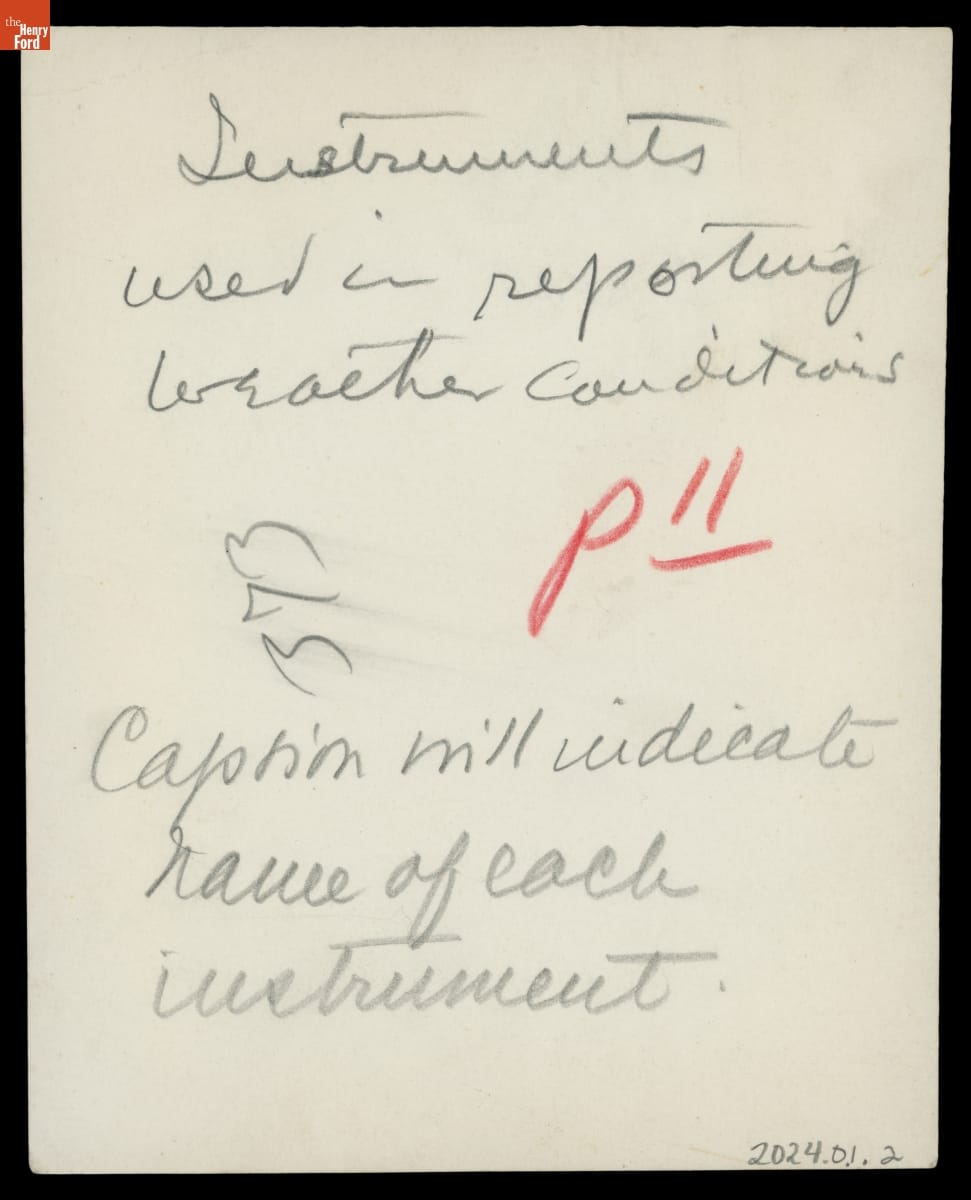 the
Henry
Ford
Instruments
used in reporting
weather conditions
p 11
373
Caption will indicate
name of each
instrument.
2024.0.1.2